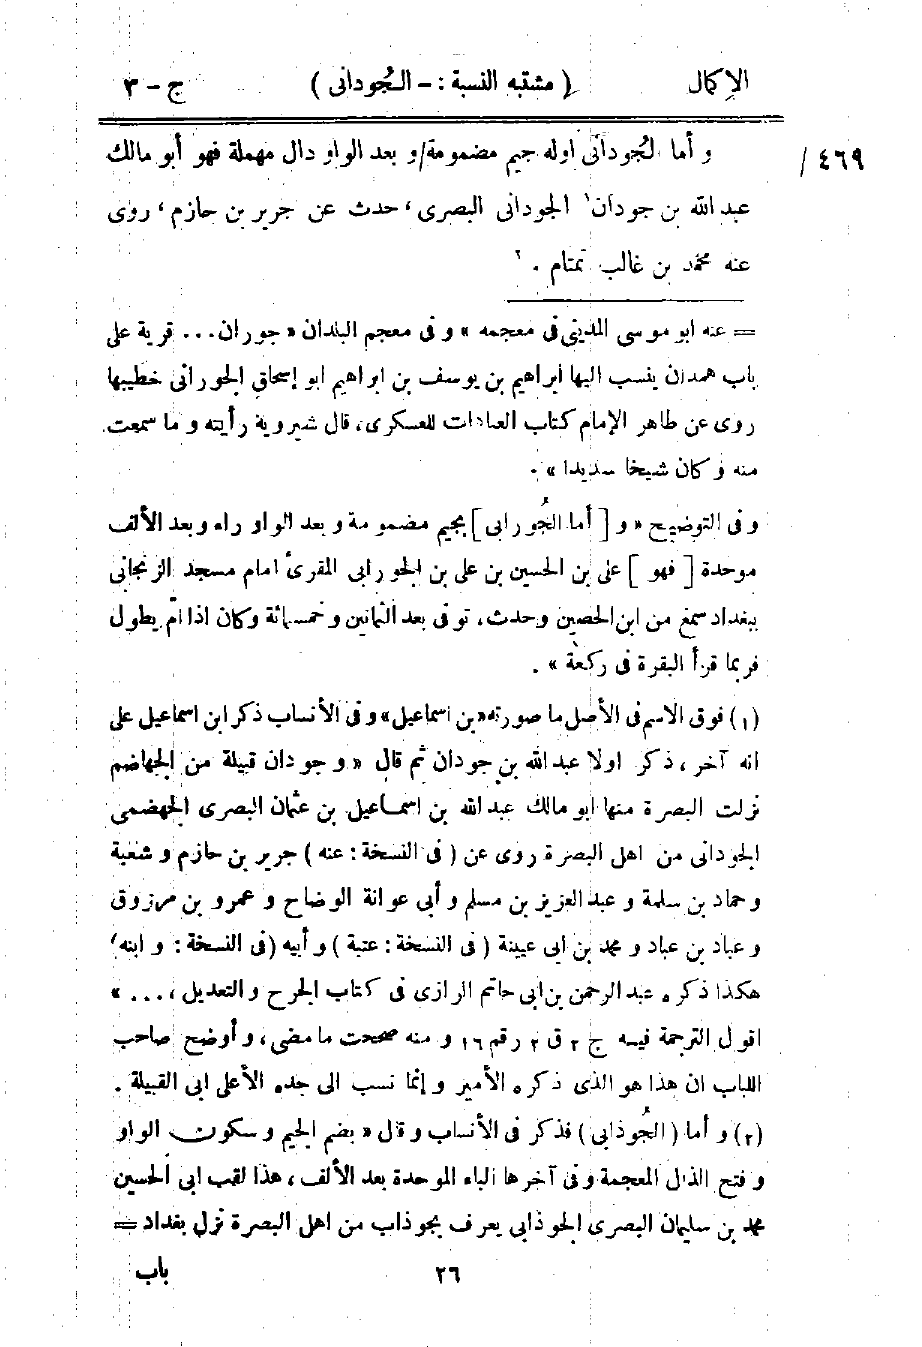 الإكمال ( مشتبه النسبة : - الجُودانى ) ج - ٣
و أما الجُودانى اوله جيم مضمومة/و بعد الواو دال مهملة فهو أبو مالك / ٤٦٩
عبد الله بن جودان¹ الجودانى البصرى، حدث عن جرير بن حازم، روى
عنه محمد بن غالب تمتام .²
= عنه ابو موسى المدينى فى معجمه » و فى معجم البلدان « جوران ... قرية على
باب همدان ينسب اليها ابراهيم بن يوسف بن ابراهيم ابو إسحاق الجورانى خطيبها
روى عن طاهر الإمام كتاب العبادات للعسكرى، قال شيروية رأيته و ما سمعت
منه و كان شيخا سديدا » .
و فى التوضيح « و [ أما الجُورابى ] بجيم مضمومة و بعد الواو راء و بعد الألف
موحدة [ فهو ] على بن الحسين بن على بن الجورابى المقرئ امام مسجد الزنجانى
ببغداد سمع من ابن الحصين وحدث، توفى بعد الثمانين و خمسمائة وكان اذا أمّ يطول
فربما قرأ البقرة فى ركعة » .
(١) فوق الاسم فى الأصل ما صورته «بن اسماعيل» و فى الأنساب ذكر ابن اسماعيل على
انه آخر، ذكر اولا عبد الله بن جودان ثم قال « و جودان قبيلة من الجهاضم
نزلت البصرة منها ابو مالك عبد الله بن اسماعيل بن عثمان البصرى الجهضمى
الجودانى من اهل البصرة روى عن ( فى النسخة : عنه ) جرير بن حازم و شعبة
و حماد بن سلمة و عبد العزيز بن مسلم و أبى عوانة الوضاح و عمرو بن مرزوق
و عباد بن عباد و محمد بن ابى عيينة ( فى النسخة : عتبة ) و أبيه (فى النسخة : و ابنه)
هكذا ذكره عبد الرحمن بن ابى حاتم الرازى فى كتاب الجرح و التعديل، ... »
اقول الترجمة فيه ج ٢ ق ٢ رقم ١٦ و منه صححت ما مضى، و أوضح صاحب
اللباب ان هذا هو الذى ذكره الأمير و إنما نسب الى جده الأعلى ابى القبيلة .
(٢) و أما ( الجُوذابى ) فذكر فى الأنساب و قال « بضم الجيم و سكون الواو
و فتح الذال المعجمة و فى آخرها الباء الموحدة بعد الألف، هذا لقب ابى الحسين
محمد بن سليمان البصرى الجوذابى يعرف بجوذاب من اهل البصرة نزل بغداد =
٢٦ باب